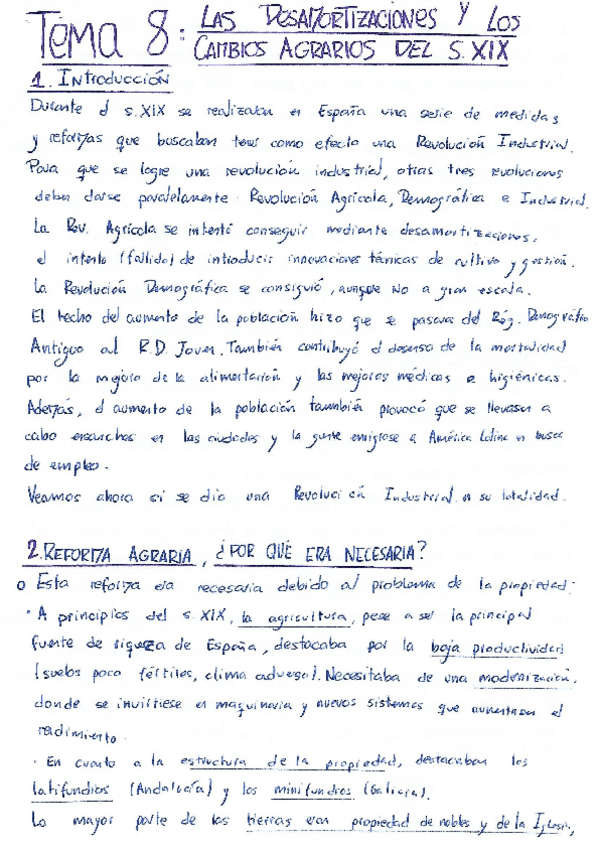 TEMA 8: LAS DESAMORTIZACIONES Y LOS
CAMBIOS AGRARIOS DEL S.XIX
1. INTRODUCCIÓN
Durante el s.XIX se realizaban en España una serie de medidas
y reformas que buscaban tener como efecto una Revolución Industrial.
Para que se logre una revolución industrial, otras tres revoluciones
deben darse paralelamente: Revolución Agrícola, Demográfica e Industrial.
La Rev. Agrícola se intentó conseguir mediante desamortizaciones,
el intento (fallido) de introducir innovaciones técnicas de cultivo y gestión.
La Revolución Demográfica se consiguió, aunque no a gran escala.
El hecho del aumento de la población hizo que se pasara del Rég. Demográfico
Antiguo al R.D. Joven. También contribuyó el descenso de la mortalidad
por la mejora de la alimentación y las mejoras médicas e higiénicas.
Además, el aumento de la población también provocó que se llevasen a
cabo ensanches en las ciudades y la gente emigrase a América Latina en busca
de empleo.
Veamos ahora si se dio una Revolución Industrial en su totalidad.
2. REFORMA AGRARIA, ¿POR QUÉ ERA NECESARIA?
o Esta reforma era necesaria debido al problema de la propiedad:
· A principios del s.XIX, la agricultura, pese a ser la principal
fuente de riqueza de España, destacaba por la baja productividad
(suelos poco fértiles, clima adverso). Necesitaba de una modernización,
donde se invirtiese en maquinaria y nuevos sistemas que aumentasen el
redimiento.
· En cuanto a la estructura de la propiedad, destacaban los
latifundios (Andalucía) y los minifundios (Galicia).
La mayor parte de las tierras eran propiedad de nobles y de la Iglesia,